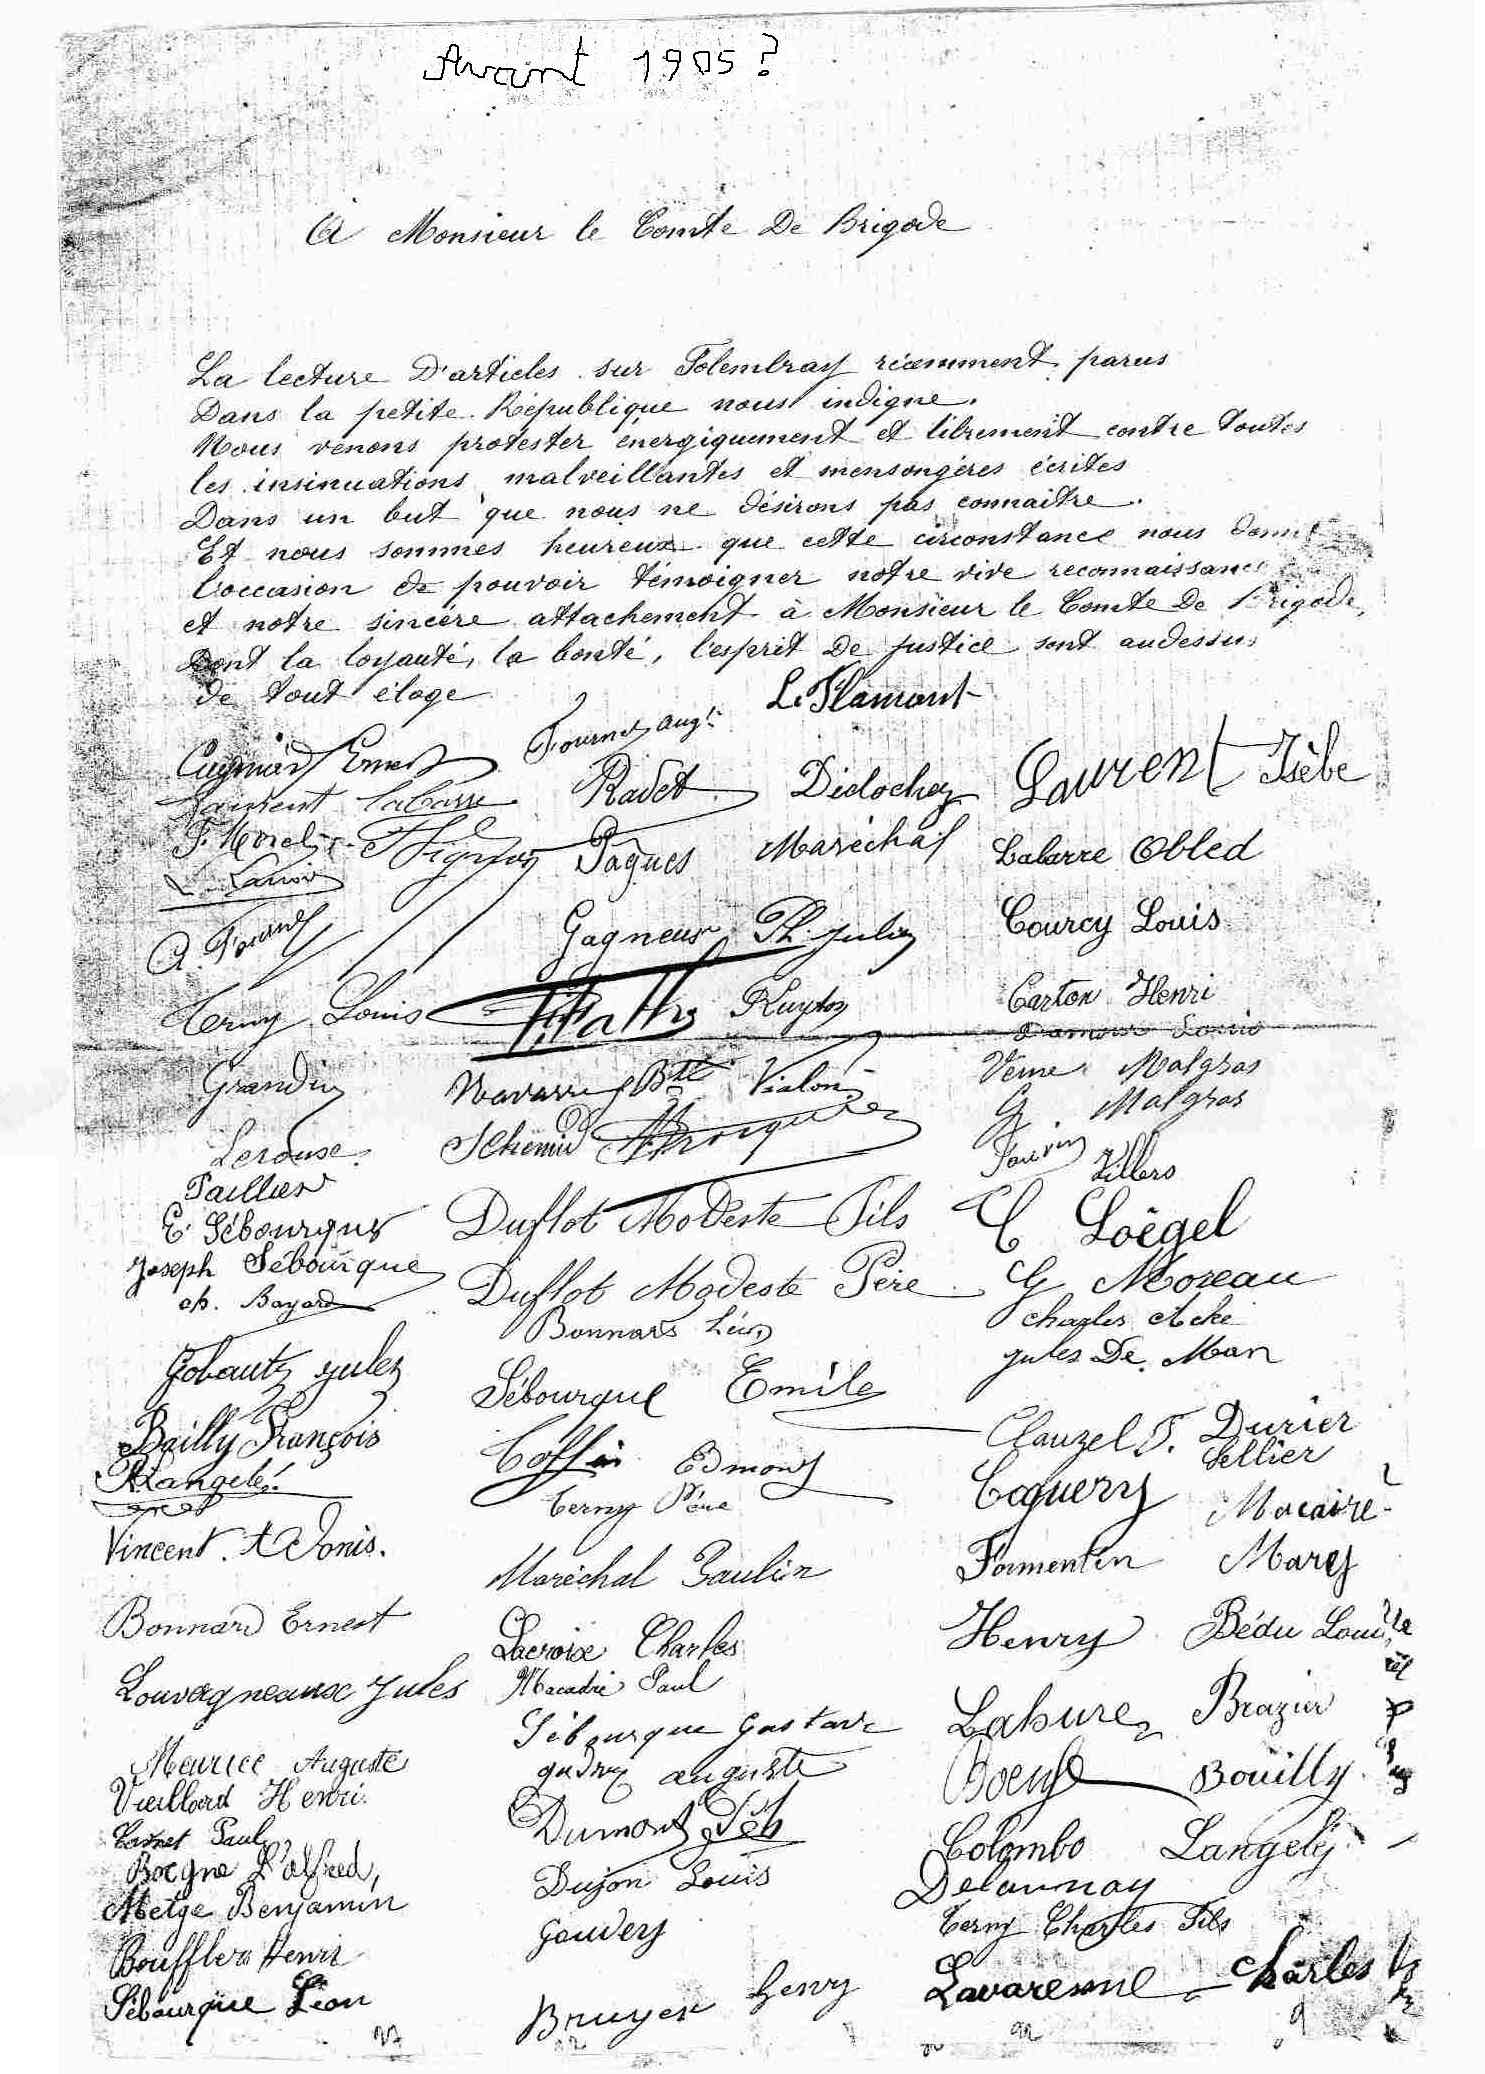 Avant 1905?
A Monsieur le Comte De Brigode
La lecture D'articles sur Folembray récemment parus
Dans la petite République nous indigne.
Nous venons protester énergiquement et librement contre toutes
les insinuations malveillantes et mensongères écrites
Dans un but que nous ne désirons pas connaitre.
Et nous sommes heureux que cette circonstance nous donne
l'occasion de pouvoir témoigner notre vive reconnaissance
et notre sincère attachement à Monsieur le Comte De Brigode,
Dont la loyauté, la bonté, l'esprit De justice sont audessus
de tout éloge
Le Flamant
Fournet Augte
Laurent Isèbe
Radet Didochez
F. Morel
Pâques Maréchal Labarre Obled
Gagneux Ph. Julien Courcy Louis
Terny Louis Ruyton Carton Henri
Damour Louis
Grandin Navarre Bte Vialon Verne Malgras
G Malgras
Lerouse Schemid Villers
Paillier
E. Sébourque Duflot Modeste Fils C Loëgel
Joseph Sébourque Duflot Modeste Père G Moreau
ch. Bayard Bonnard Léon Charles Aché
Gobautz Jules Jules De Man
Sébourque Emile
Bailly François Clauzel F. Durier
Coffin Edmond Sellier
Langelé Coquery
Terny Père Macaire
Vincent Adonis.
Maréchal Paulin Formentin Marcy
Bonnard Ernest Lacroix Charles Henry Bédu Louis
Louvegneaux Jules Macadré Paul
Sébourque Gustave Lahure Brazier
Meurice Auguste Auguste
Vieillard Henri Boeuf Bouilly
Carnet Paul Dumont Colombo Langelez
Bocgne L'alfred, Dujon Louis Delaunay
Metge Benjamin Terny Charles Fils
Boufflers Henri Goudery
Sébourque Léon Bruyer Henry Lavarenne Charles